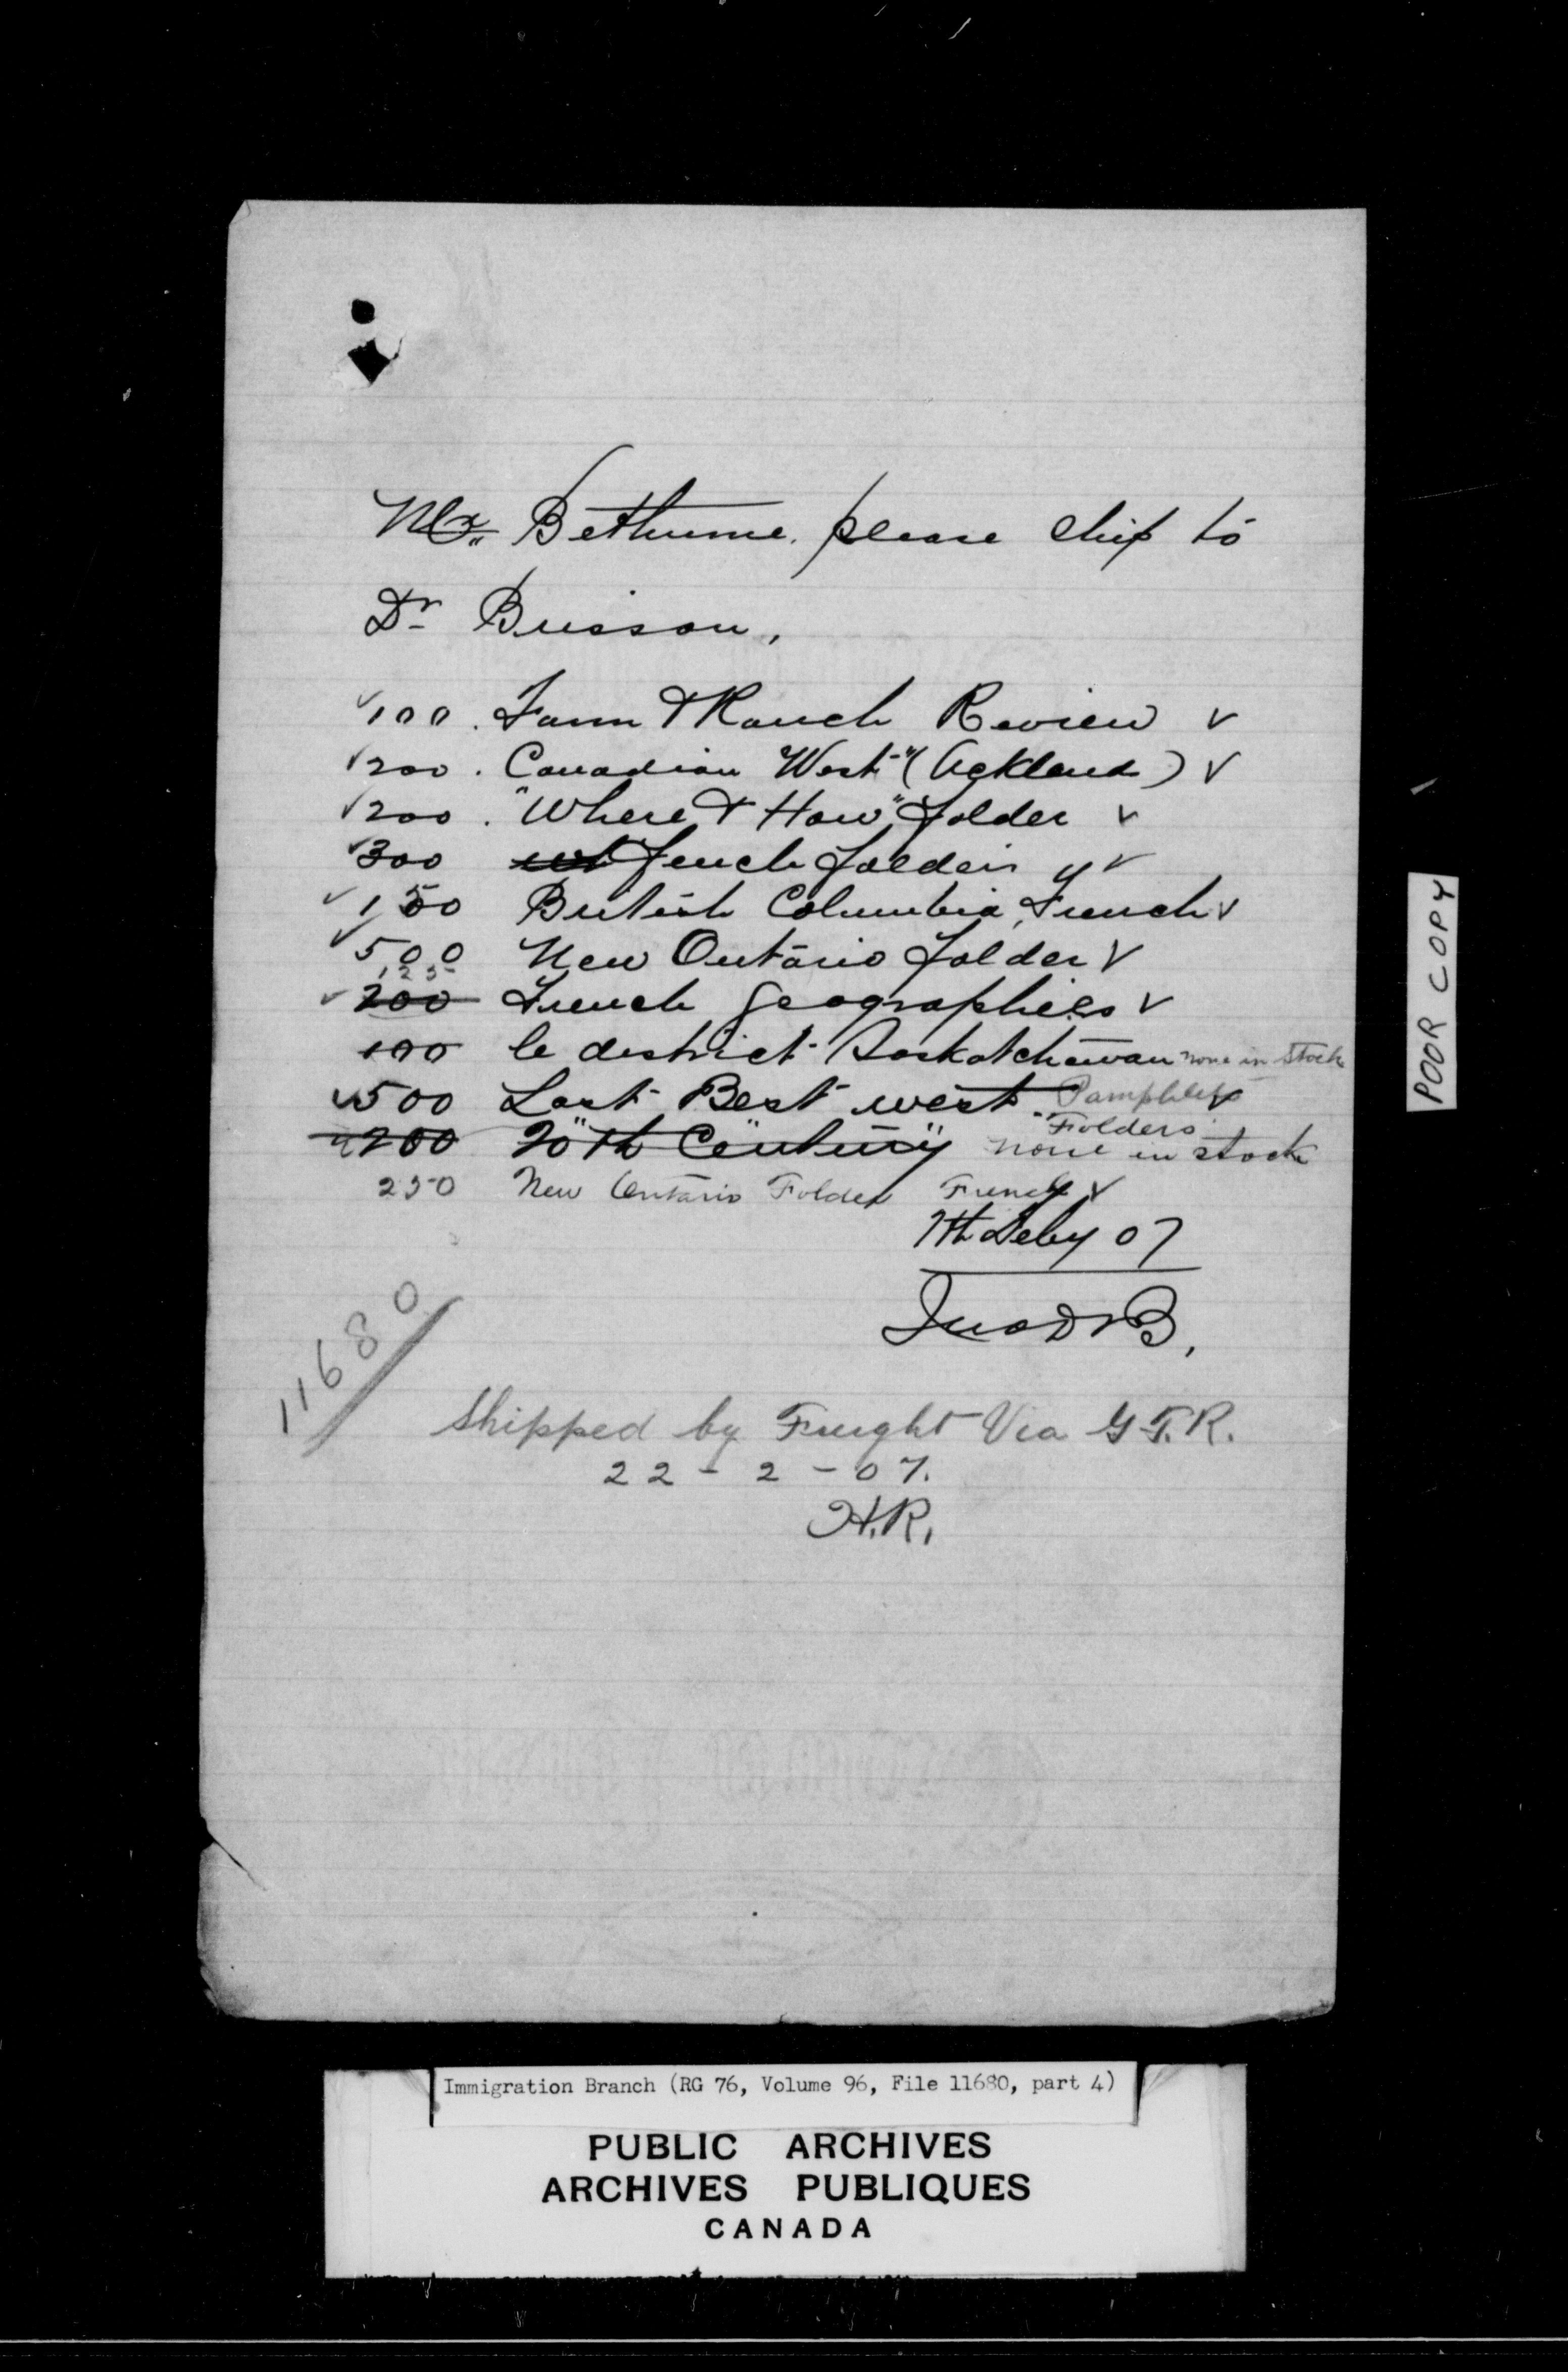 Mr. Bethune. please ship to
Dr Brisson,
✓100. Farm & Ranch Review ✓
✓200. Canadian West" (Ackland) ✓
✓200. "Where & How" folder ✓
✓300 French folders ✓
✓150 British Columbia, French ✓
✓500 New Ontario folder ✓
125
✓200 French geographies ✓
100 le district Saskatchewan none in stock
✓500 Last Best west Pamphlets
Folders
200 20th Century" none in stock
250 New Ontario Folder French ✓
7th Feby 07
11680
Shipped by Freight Via G.T.R.
22-2-07.
H.R.
POOR COPY
Immigration Branch (RG 76, Volume 96, File 11680, part 4)
PUBLIC ARCHIVES
ARCHIVES PUBLIQUES
CANADA